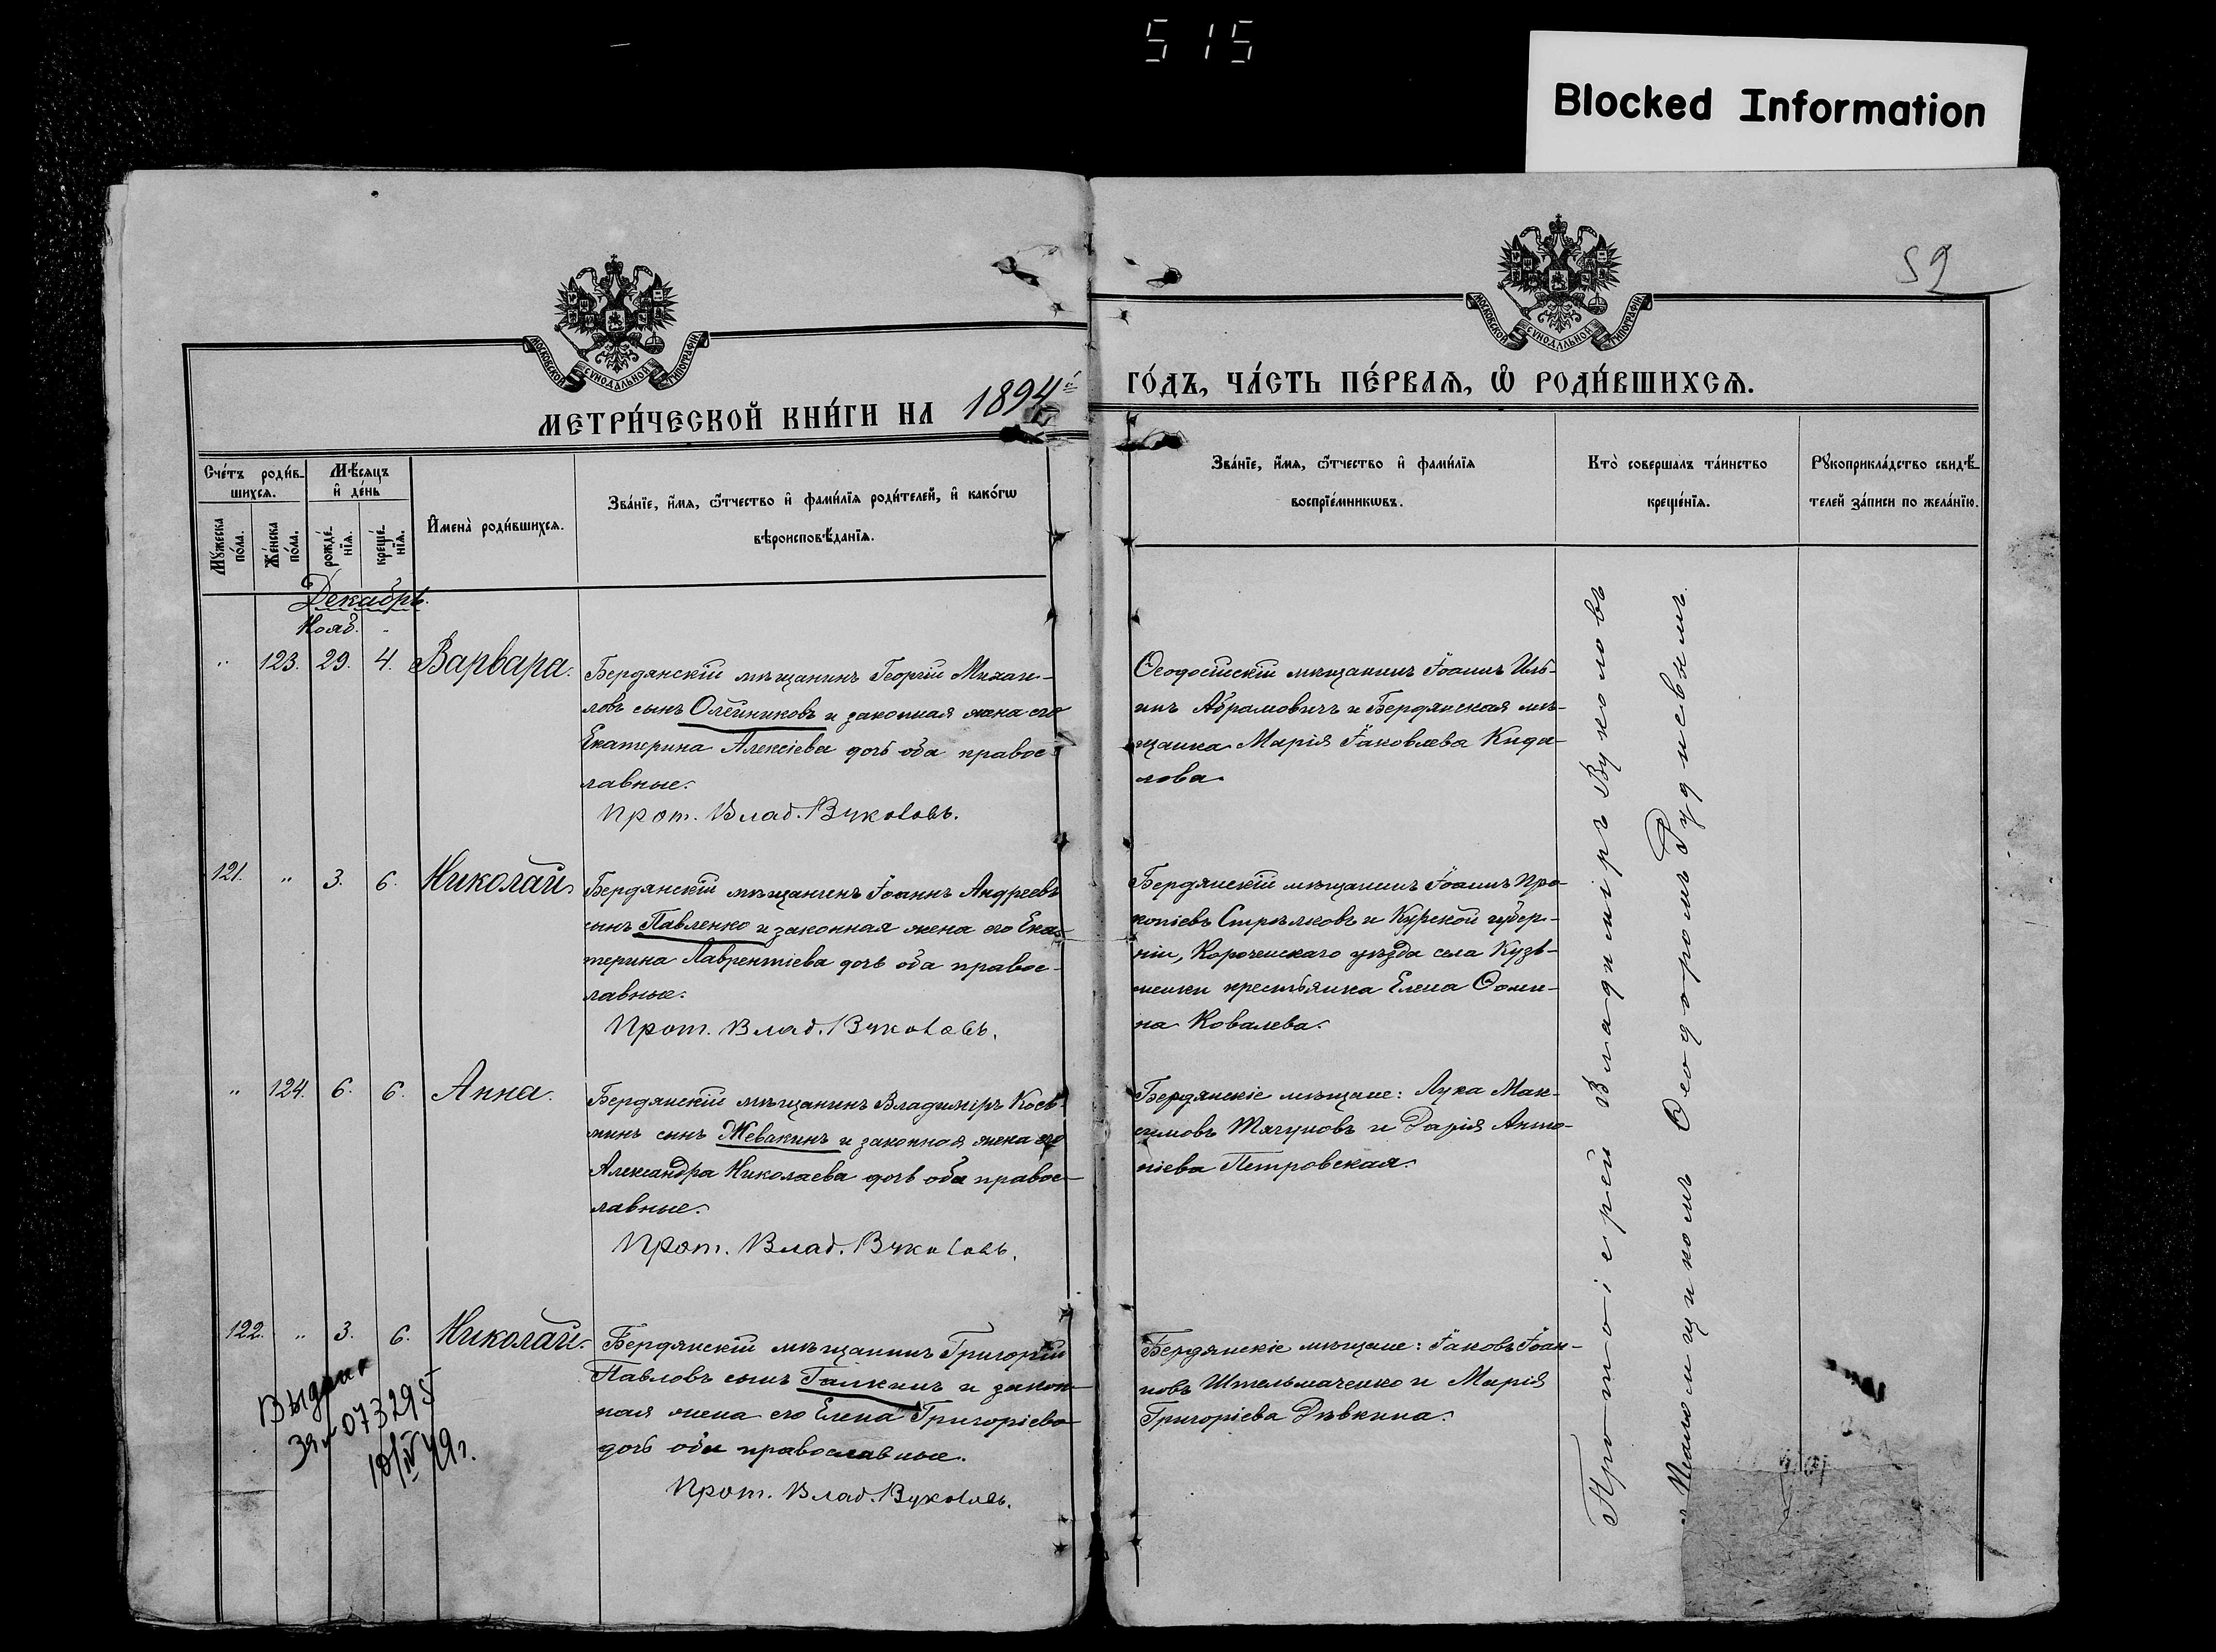 515
Blocked Information
59
МОСКОВСКОЙ СѴНОДАЛЬНОЙ ТИПОГРАФІИ
МОСКОВСКОЙ СѴНОДАЛЬНОЙ ТИПОГРАФІИ
МЕТРИ́ЧЕСКОЙ КНИ́ГИ НА 1894й
ГО́ДЪ, ЧА́СТЬ ПЕ́РВАѦ, Ѽ РОДИ́ВШИХСѦ.
Сче́тъ роди́в-
шихсѧ.
Мꙋ́жеска
по́ла.
Же́нска
по́ла.
Мѣ́сѧцъ
и҆ де́нь
рожде́-
нїѧ.
креще́-
нїѧ.
И҆мена̀ роди́вшихсѧ.
Зва́нїе, и҆́мѧ, ѻ҆́тчество и҆ фами́лїѧ роди́телей, и҆ како́гѡ
вѣроисповѣ́данїѧ.
Зва́нїе, и҆́мѧ, ѻ҆́тчество и҆ фами́лїѧ
воспрїе́мникѡвъ.
Кто̀ соверша́лъ та́инство
креще́нїѧ.
Рꙋкоприкла́дство свидѣ́-
телей за́писи по жела́нїю.
Декабрь.
Нояб.
" 123. 29. 4. Варвара.
Бердянскій мѣщанинъ Георгій Михаи-
ловъ сынъ Олейниковъ и законная жена его
Екатерина Алексіева дочь оба правос-
лавные.
Прот. Влад. Вуколовъ.
Ѳеодосійскій мѣщанинъ Іоаннъ Иль-
инъ Абрамовичъ и Бердянская мѣ-
щанка Марія Іаковлева Кида-
лова.
121. " 3. 6. Николай.
Бердянскій мѣщанинъ Іоаннъ Андреевъ
сынъ Павленко и законная жена его Ека-
терина Лаврентіева дочь оба правос-
лавные.
Прот. Влад. Вуколовъ.
Бердянскій мѣщанинъ Іоаннъ Про-
копіевъ Стрѣлковъ и Курской губер-
ніи, Корочанскаго уѣзда села Кузь-
менки крестьянка Елена Ѳоми-
на Ковалева.
" 124. 6. 6. Анна.
Бердянскій мѣщанинъ Владиміръ Кось-
минъ сынъ Жевакинъ и законная жена его
Александра Николаева дочь оба правос-
лавные.
Прот. Влад. Вуколовъ.
Бердянскіе мѣщане: Лука Мак-
симовъ Тягуновъ и Дарія Анто-
ніева Петровская.
122. " 3. 6. Николай.
Бердянскій мѣщанинъ Григорій
Павловъ сынъ Галкинъ и закон-
ная жена его Елена Григоріева
дочь оба православные.
Прот. Влад. Вуколовъ.
Бердянскіе мѣщане: Іаковъ Іоан-
новъ Штельмаченко и Марія
Григоріева Дѣвкина.
073295
10/IV 49г.
Протоіерей Владиміръ Вуколовъ
Псаломщикомъ Ѳеодоромъ Рудневымъ.